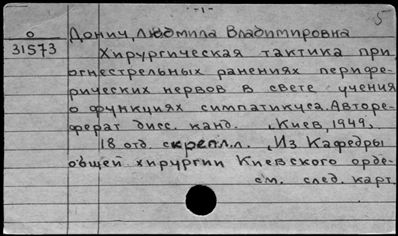 -1-
5
О
31573
Донич, Людмила Владимировна
Хирургическая тактика при
огнестрельных ранениях перифе-
рических нервов в свете учения
о функциях симпатикуса. Авторе-
ферат дисс. канд. , Киев, 1949,
18 отд. скрепл. л. , Из Кафедры
общей хирургии Киевского орде-
см. след. карт.